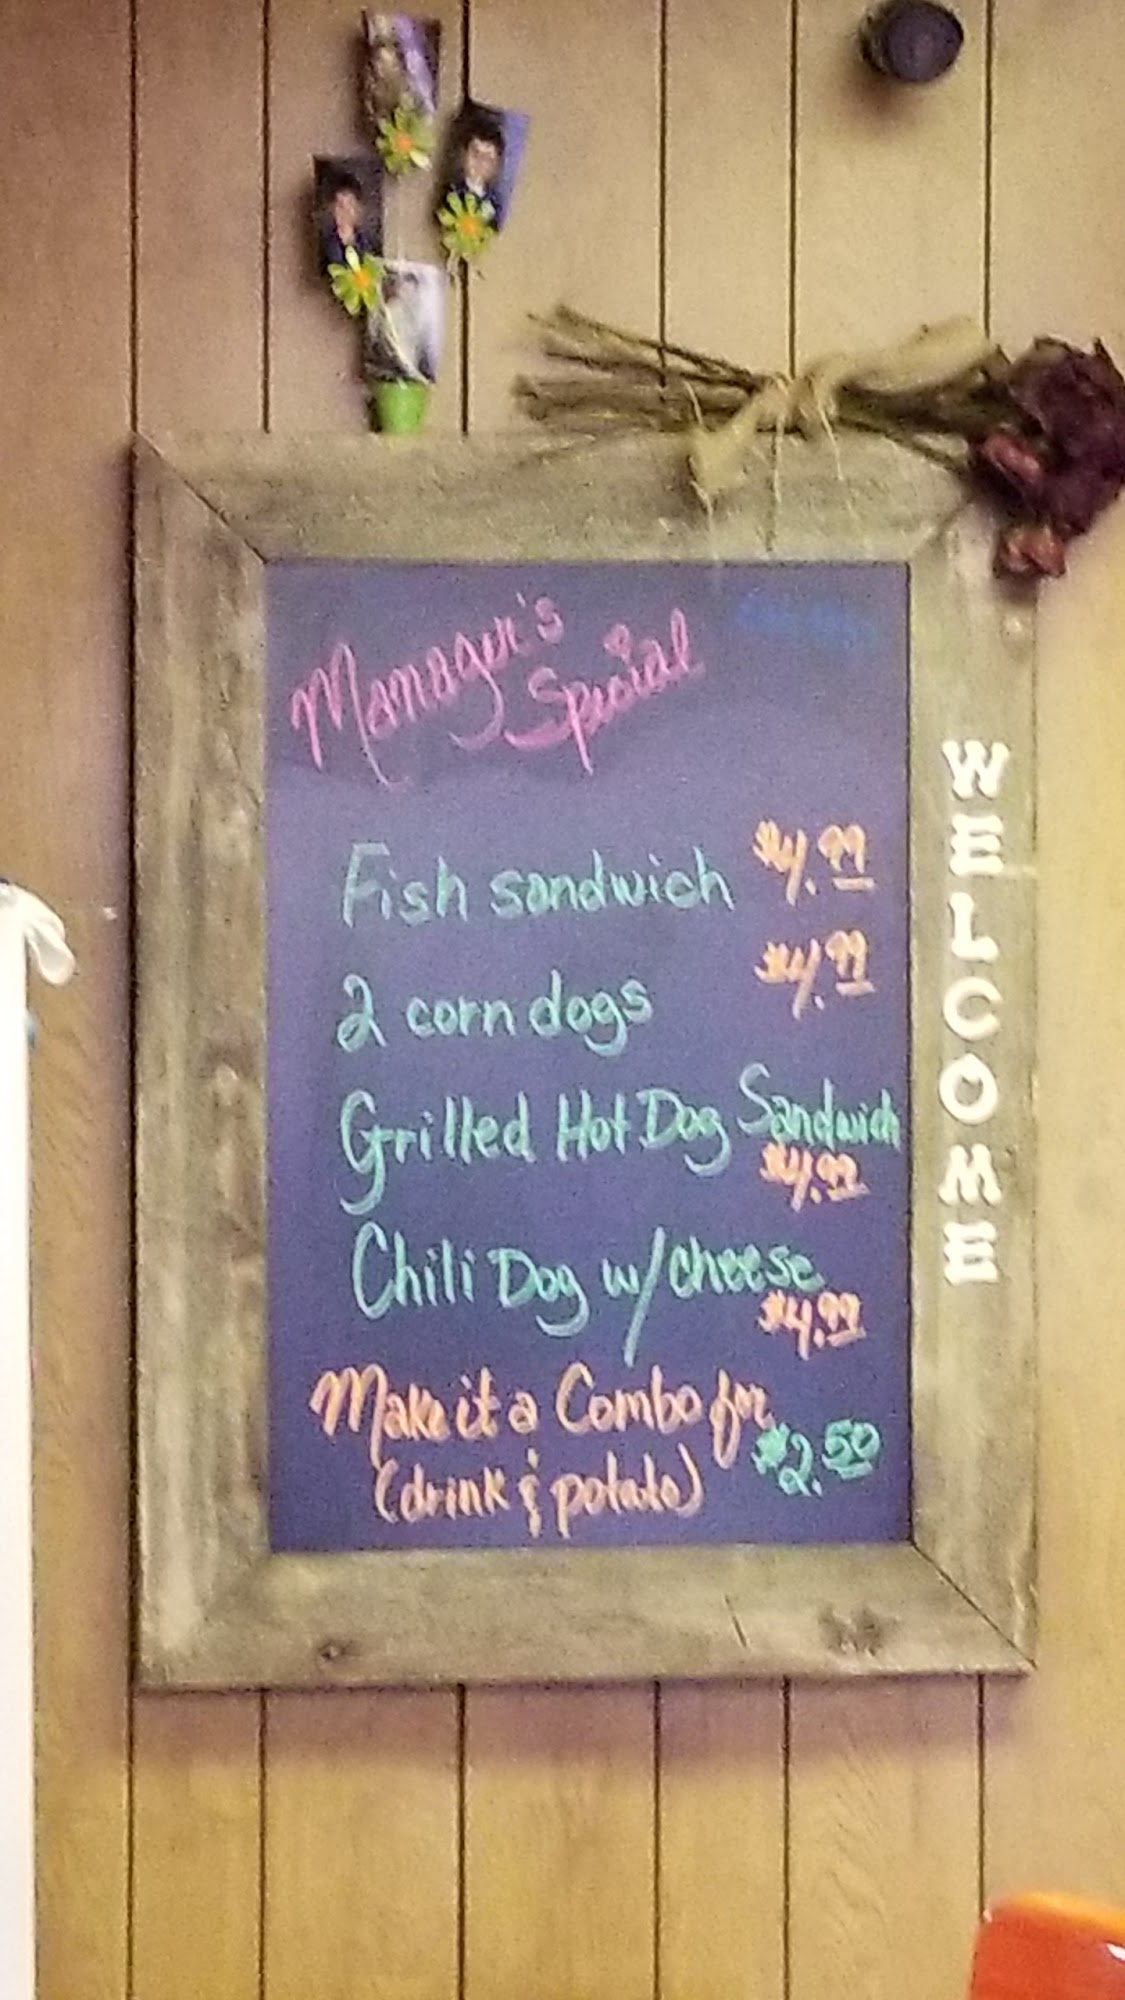 Manager's
Special
Fish sandwich $4.99
2 corn dogs $4.99
Grilled Hot Dog Sandwich
$4.99
Chili Dog w/cheese
$4.99
Make it a Combo for
(drink & potato) $2.50
WELCOME